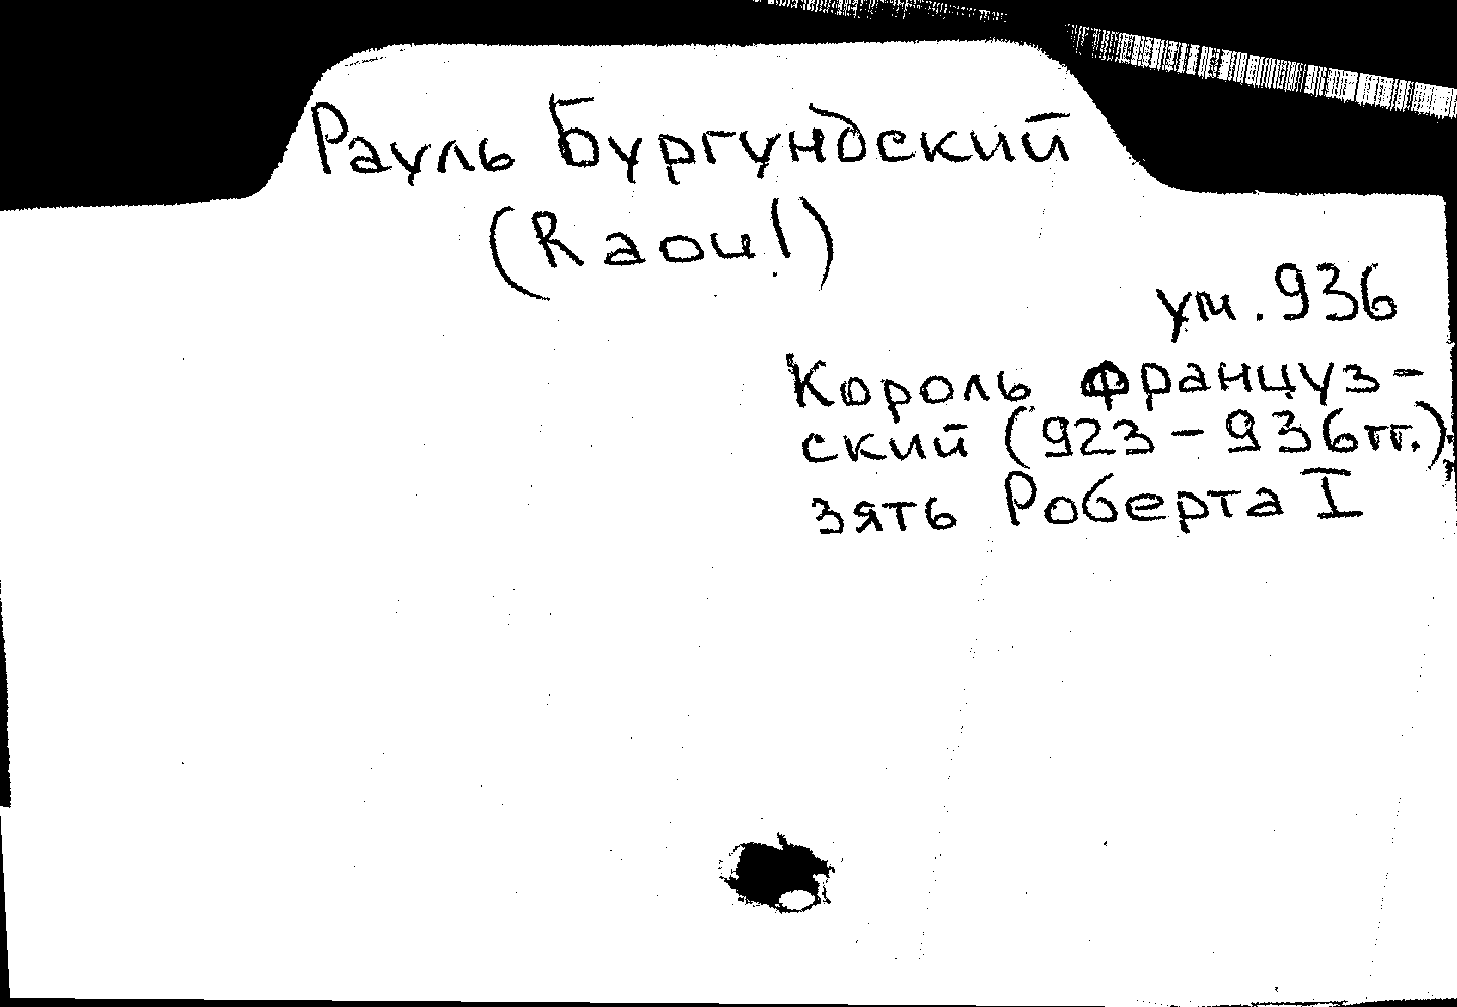 Рауль Бургундский
(Raoul)
ум. 936
Король француз-
ский (923-936гг.)
зять Роберта I